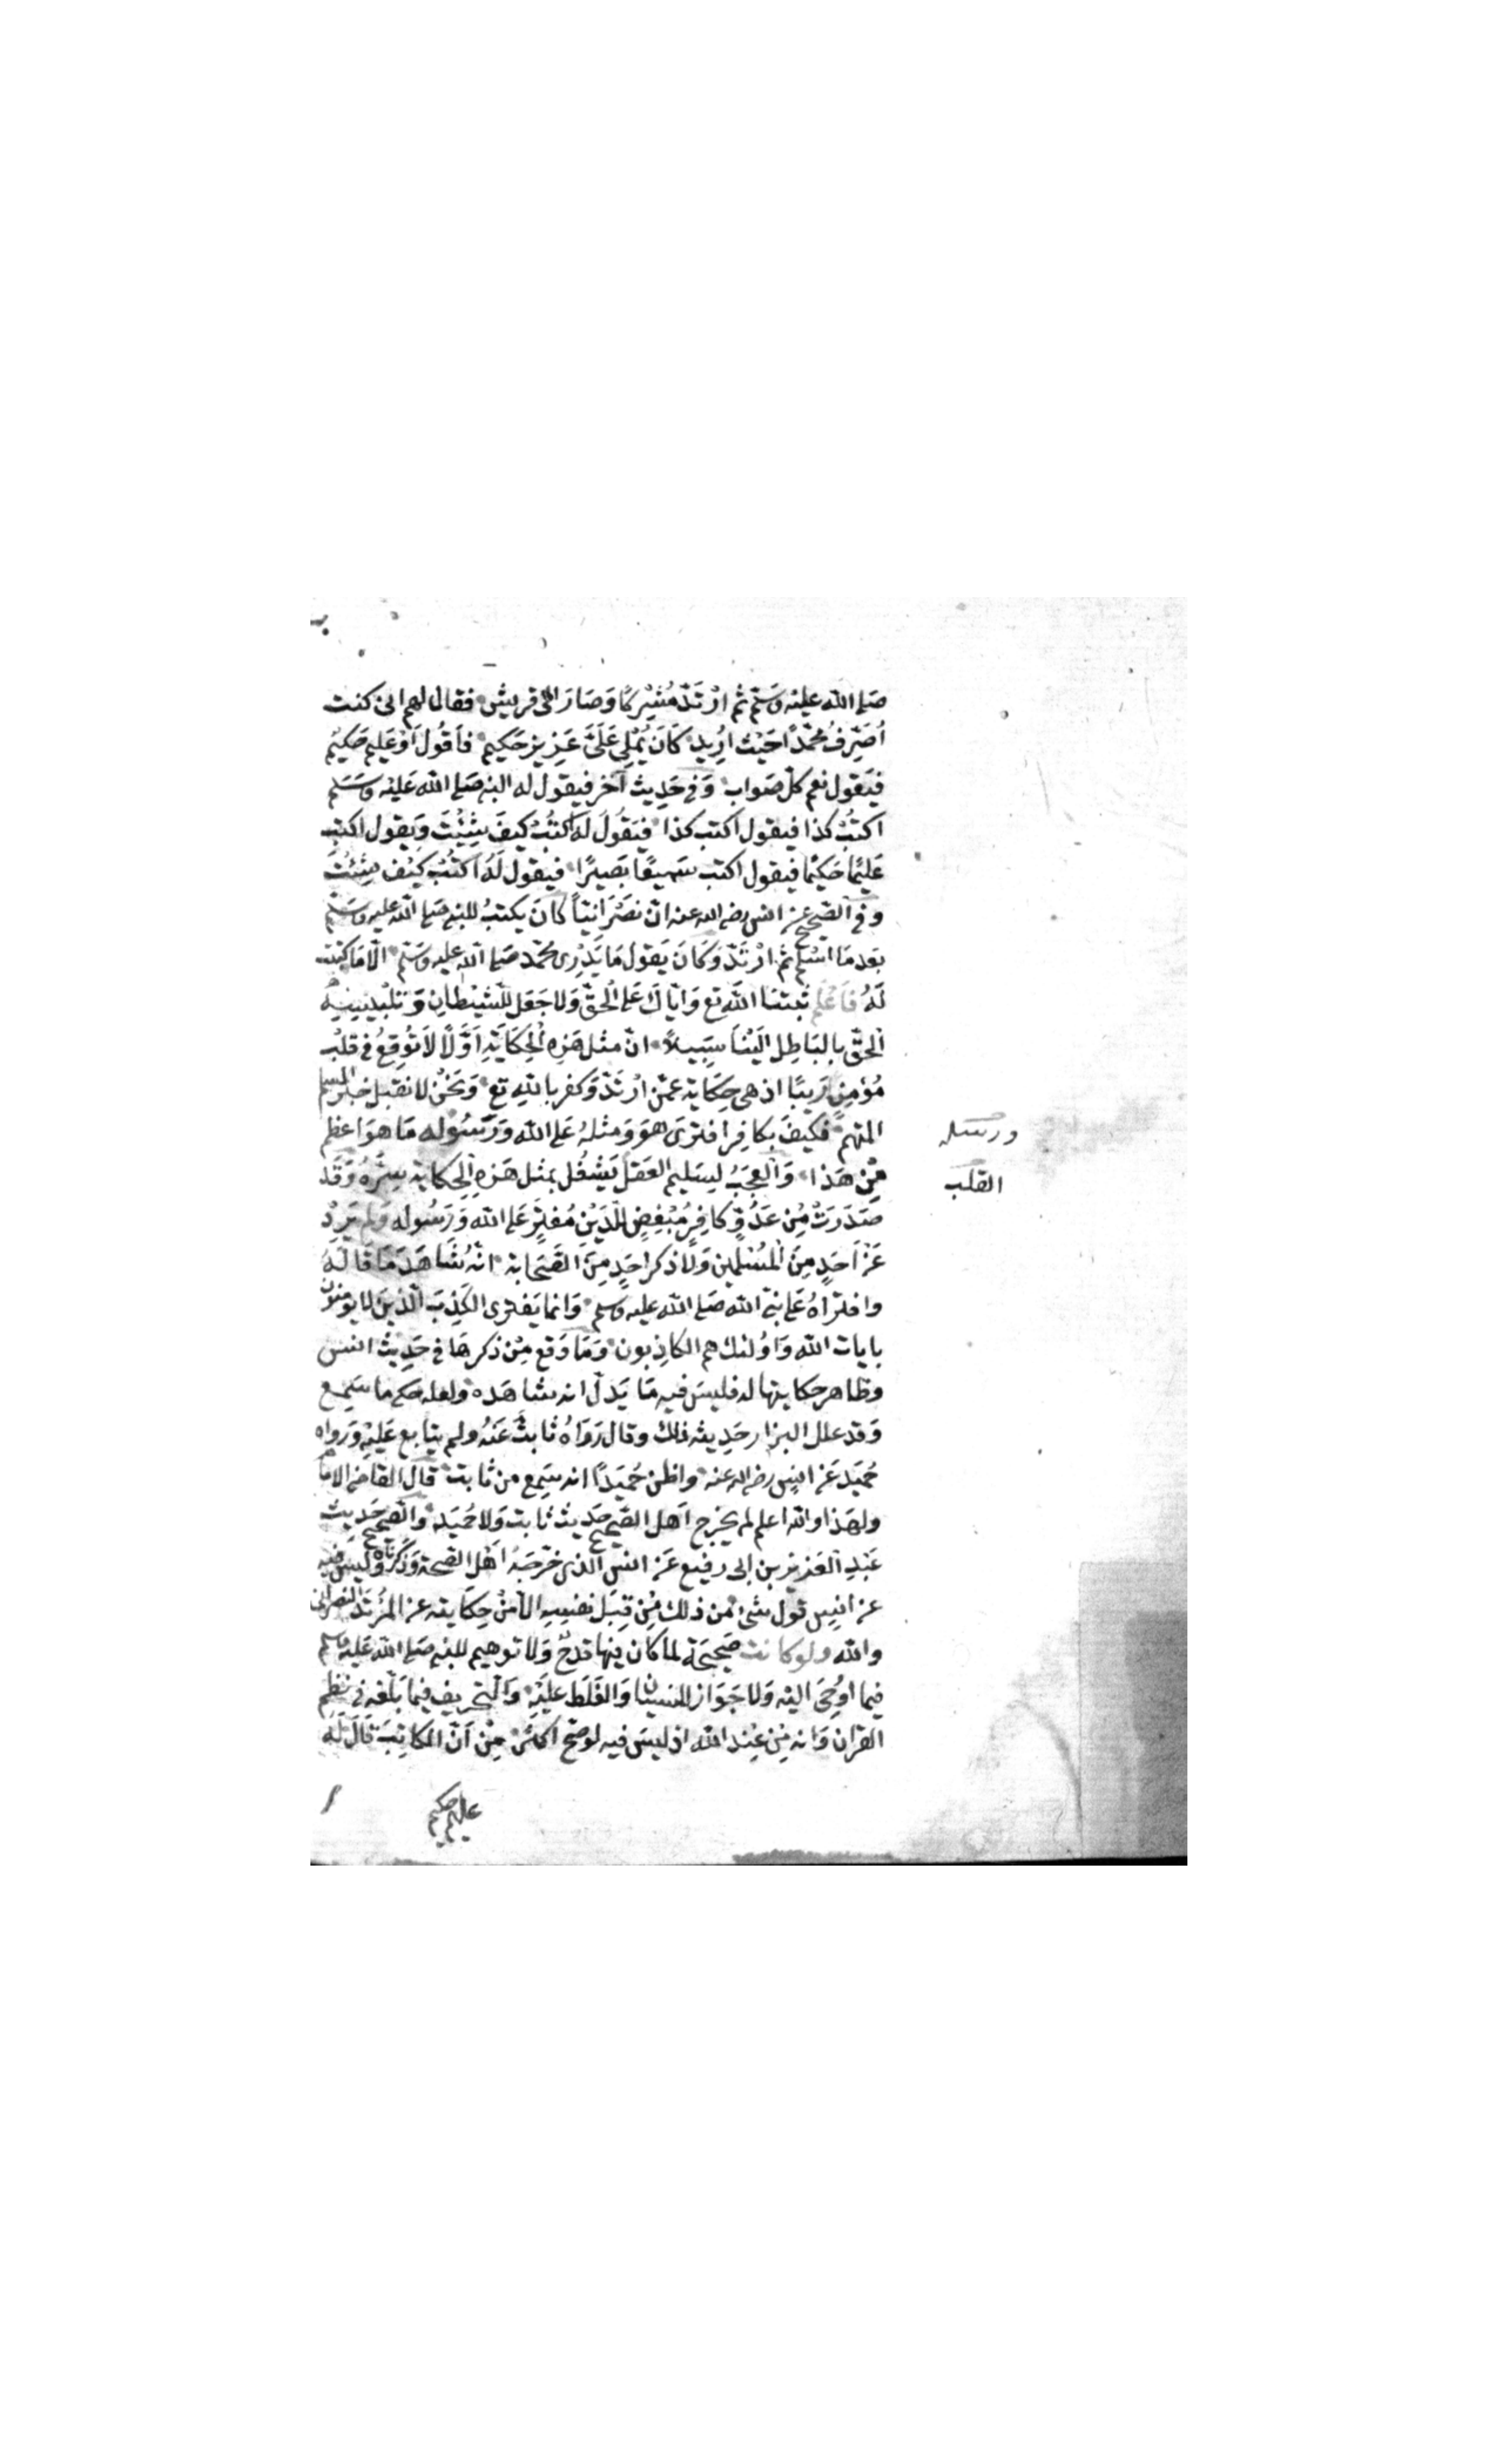 صلى الله عليه وسلم ثم ارْتَدّ مُشْرِكًا وَصَارَ الى قريش فقال لهم انى كنت
اُصَرِّفُ مُحَمَّدًا حَيْثُ اُرِيد كَانَ يُمْلِي عَلَىَّ عَزِيز حَكِيم فاَقُول اَوْ عَلِيم حَكِيم
فيَقول نعم كل صَواب وَفى حَدِيث آخر فيقول له النبى صَلى الله عَليْه وَسَلم
اكتبْ كذا فيقول اكتب كذا فيَقُولَ لَه اكتُبْ كيفَ شِئْتَ وَيَقول اكتب
عَليْمًا حَكيْما فيقول اكتب سَميعًا بَصيرًا فيقول لَهُ اكتُبْ كيْف شِئْتَ
وفى الصّحيح عَن انس رضى الله عنه انّ نصْرَانِيّاً كانَ يكتبُ للنبى صَلى الله عليه وسَلم
بَعدمَا اسْلم ثم ارْتَدّ وَكَانَ يَقول مَا يَدْرِى محمّد صَلى الله عليه وسَلم الّا مَا كتبت
لَهُ فَاعْلم ثبّتنا اللّه تع وَايّاكَ عَلى الْحقّ وَلا جَعَل للشّيْطَانِ وَتلْبيْسِهِ
الْحقّ بالبَاطِل اليْنَا سَبِيلاً انّ مثل هَذِهِ الْحِكَايَةِ اَوَّلًا لاَ تُوقِعُ فى قلْبِ
مُؤمِنٍ رَيبًا اذ هى حِكَاية عمّن ارْتَدّ وَكفر باللّه تع وَنَحْنُ لا نقبل خبر المسلم
المتهم فكيْفَ بكافِرٍ افترَى هوَ وَمثلهُ عَلى الله وَرَسُوله مَا هوَ اعظم
مِنْ هَذا وَالْعجَبُ لِسَليم العَقل يَشْغُل بمثل هَذِهِ الْحِكاية سِرَّهُ وَقَد
صَدَرَتْ مِنْ عَدُوٍّ كافِرٍ مُبْغِضٍ للدّيْن مُفتَرٍ عَلى الله وَرَسُوله وَلم يَرِدْ
عَنْ اَحَدٍ مِنَ الْمُسْلمِين وَلا ذكر احَدٍ مِنَ الصَّحَابة انّه شَاهَدَ مَا قَالهُ
وافترَاهُ عَلى نبىّ الله صَلى الله عليه وسلم وَانما يَفترى الكذِبَ الّذينَ لا يومنون
بايات الله وَاوُلئك هم الكاذِبون وَمَا وَقع مِنْ ذكرهَا فى حَدِيث انس
وظاهر حكايتها له فليسَ فيهِ مَا يَدلّ انه شاهَده ولعله حكى ما سَمِع
وَقد علل البزار حَدِيثه ذلك وقال رَوَاهُ ثابتٌ عَنهُ ولم يتابع عَليْهِ وَرواه
حُمَيد عَن انسٍ رضى الله عنه واظن حُمَيدًا انه سَمِع من ثابت قال القاضى الامام
ولهَذا والله اعلم لم يخرج اَهل الصّحيح حَدِيث ثابت وَلا حُمَيد والصّحيح حَدِيث
عَبْدِ الْعَزيز بن ابى رفيع عَن انس الذى خرّجَهُ اَهْل الصّحة وَذكرناه وَليس فيه
عن انسٍ قول شئ من ذلك مِنْ قِبَل نفسِهِ الاّ مِنْ حِكَايته عن المرْتَدّ النصرانى
والله ولو كانت صَحيحَة لما كان فيها قدحٌ وَلا توهيم للنبى صَلى الله عَليه وسلم
فيما اوُحِىَ اليْه وَلا جَوَاز للنسيان وَالغَلَط عليْهِ وَالتحريف فيما بَلّغه فى نظم
القران وَانه مِنْ عِند الله اذ ليسَ فيه لو صَحّ اكثر مِنْ اَنّ الكاتِبَ قَالَ لَهُ
عليم حكيم
ورسله
القلب